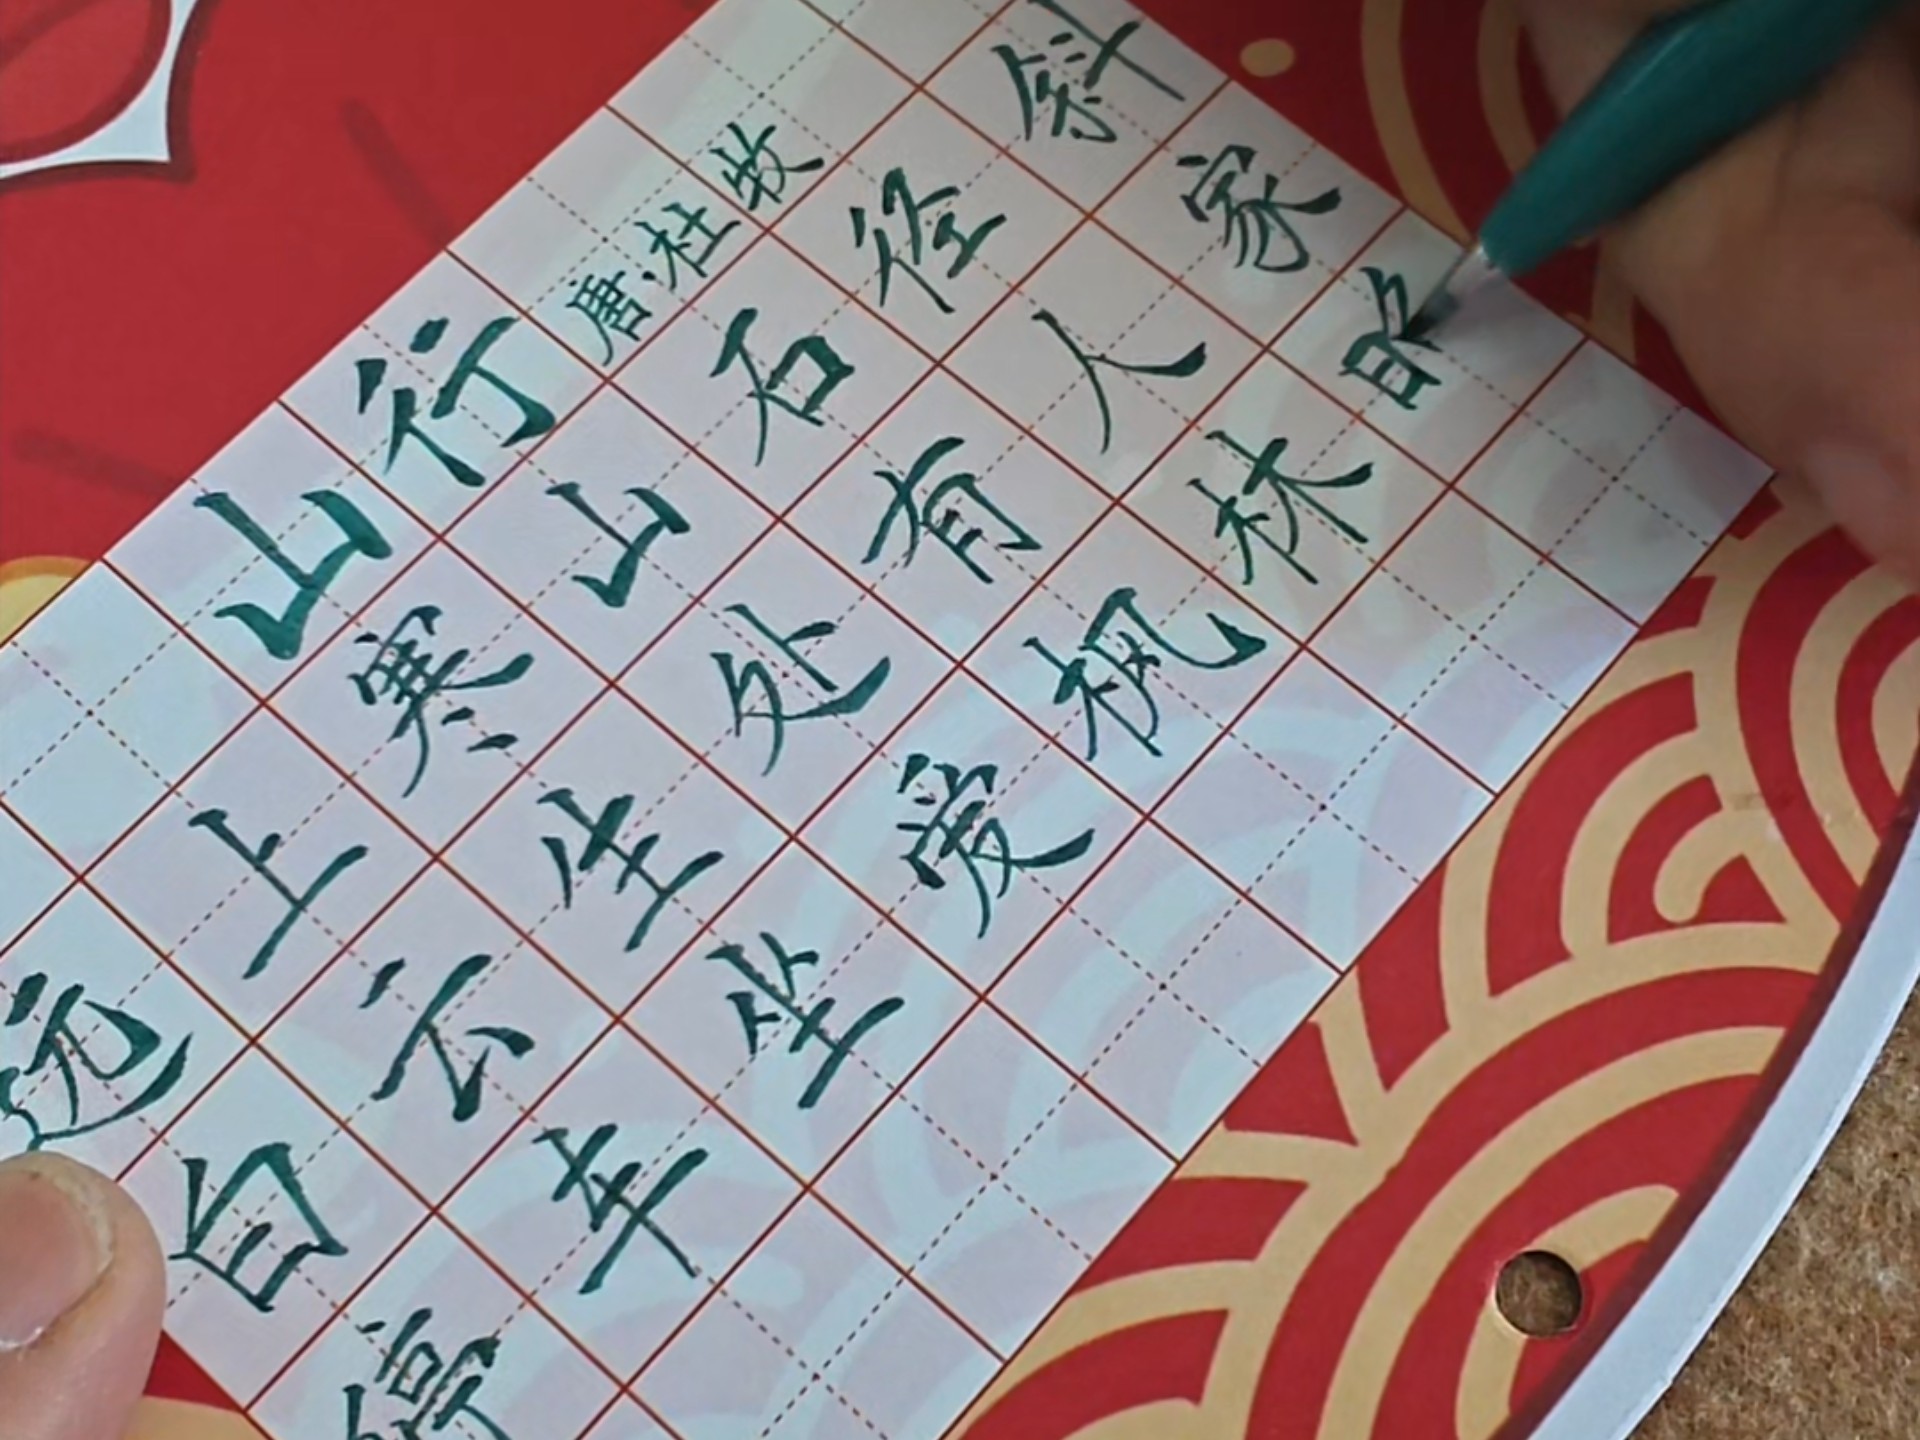 山行 唐·杜牧
远上寒山石径斜
白云生处有人家
停车坐爱枫林